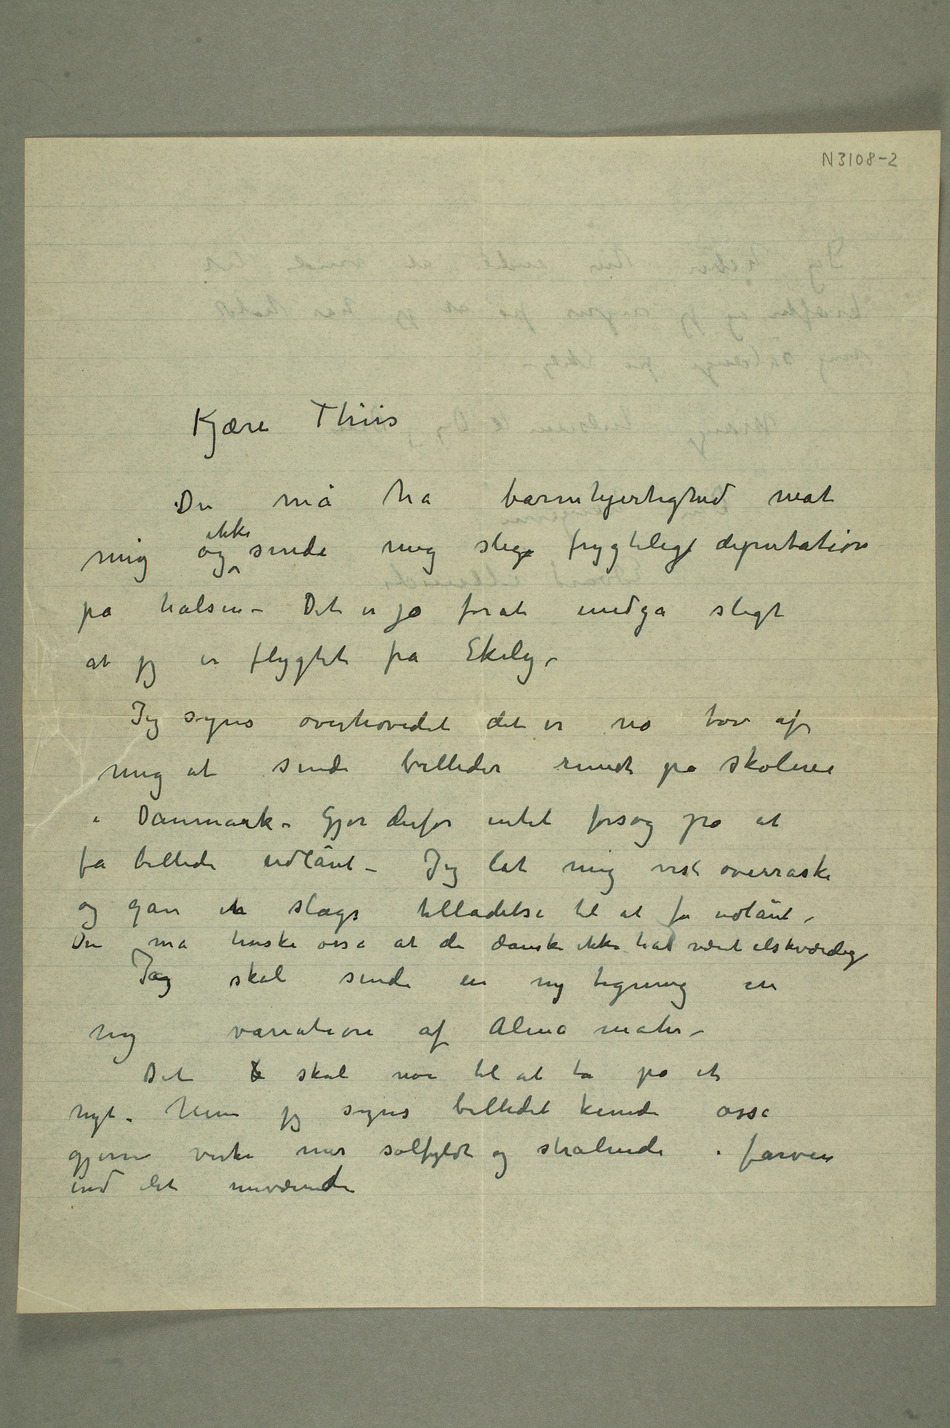 N3108-2
Kjære Thiis
Du må ha barmhjertighed mot
mig og ikke sende mig slige frygtelige deputation
på halsen – Det er jo forat undgå sligt
at jeg er flygtet fra Ekely –
Jeg synes overhovedet det er no tøv af
mig at sende billeder rundt på skolene
i Danmark – Gjør derfor intet forsøg på at
få billede udlånt – Jeg lot mig vist overraske
og gav en slags tilladelse til at få udlånt –
Du må huske osså at de danske ikke har vært elskværdig
Jeg skal sende en ny tegning en
ny variation af Alma mater –
Det skal noe til at ta på et
nyt – Men jeg synes billedet kunde osså
gjerne virke mer solfyldt og strålende i farven
end det nuværende